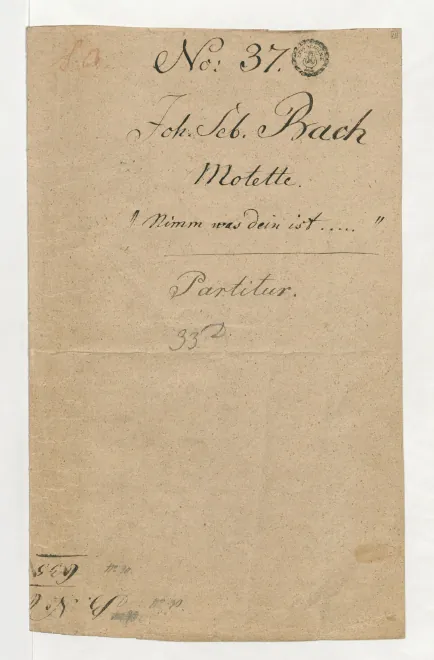 No: 37.
Joh. Seb. Bach
Motette.
"Nimm was dein ist....."
Partitur.
33